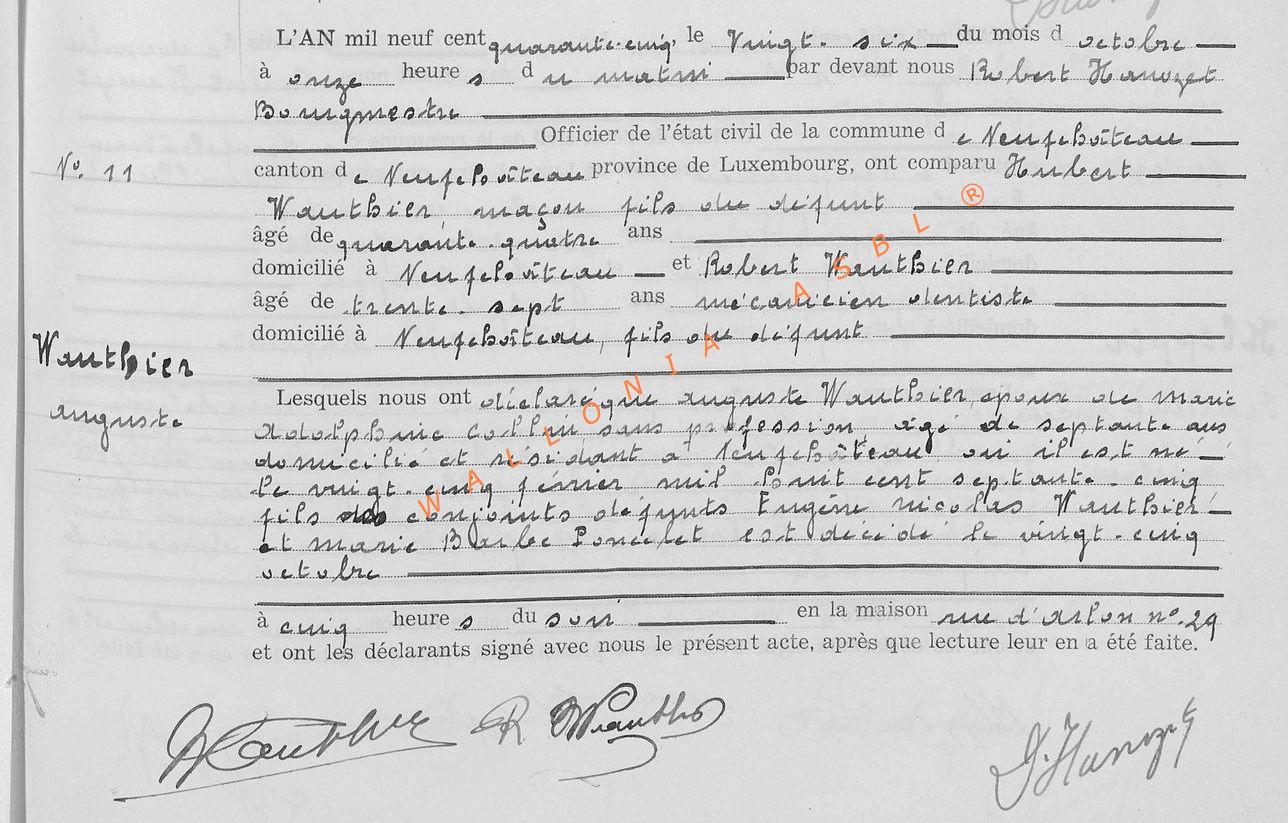 L'AN mil neuf cent quarante-cinq, le Vingt-six du mois d octobre
à onze heure s d u matin par devant nous Robert Hanozet
Bourgmestre
Officier de l'état civil de la commune d e Neufchâteau
N° 11 canton d e Neufchâteau province de Luxembourg, ont comparu Hubert
Wauthier, maçon fils du défunt
âgé de quarante-quatre ans
domicilié à Neufchâteau et Robert Wauthier
âgé de trente-sept ans mécanicien dentiste
domicilié à Neufchâteau, fils du défunt
Wauthier
auguste
Lesquels nous ont déclaré que auguste Wauthier, époux de marie
adolphine Collin sans profession âgé de septante ans
domicilié et résidant à Neufchâteau où il est né
le vingt-cinq février mil huit cent septante-cinq
fils des conjoints défunts Eugène nicolas Wauthier
et marie Barbe Poncelet est décédé le vingt-cinq
octobre
à cinq heure s du soir en la maison rue d'Arlon n° 29
et ont les déclarants signé avec nous le présent acte, après que lecture leur en a été faite.
WALLONIA ASBL ®
HWauthier R Wauthier Hanozet